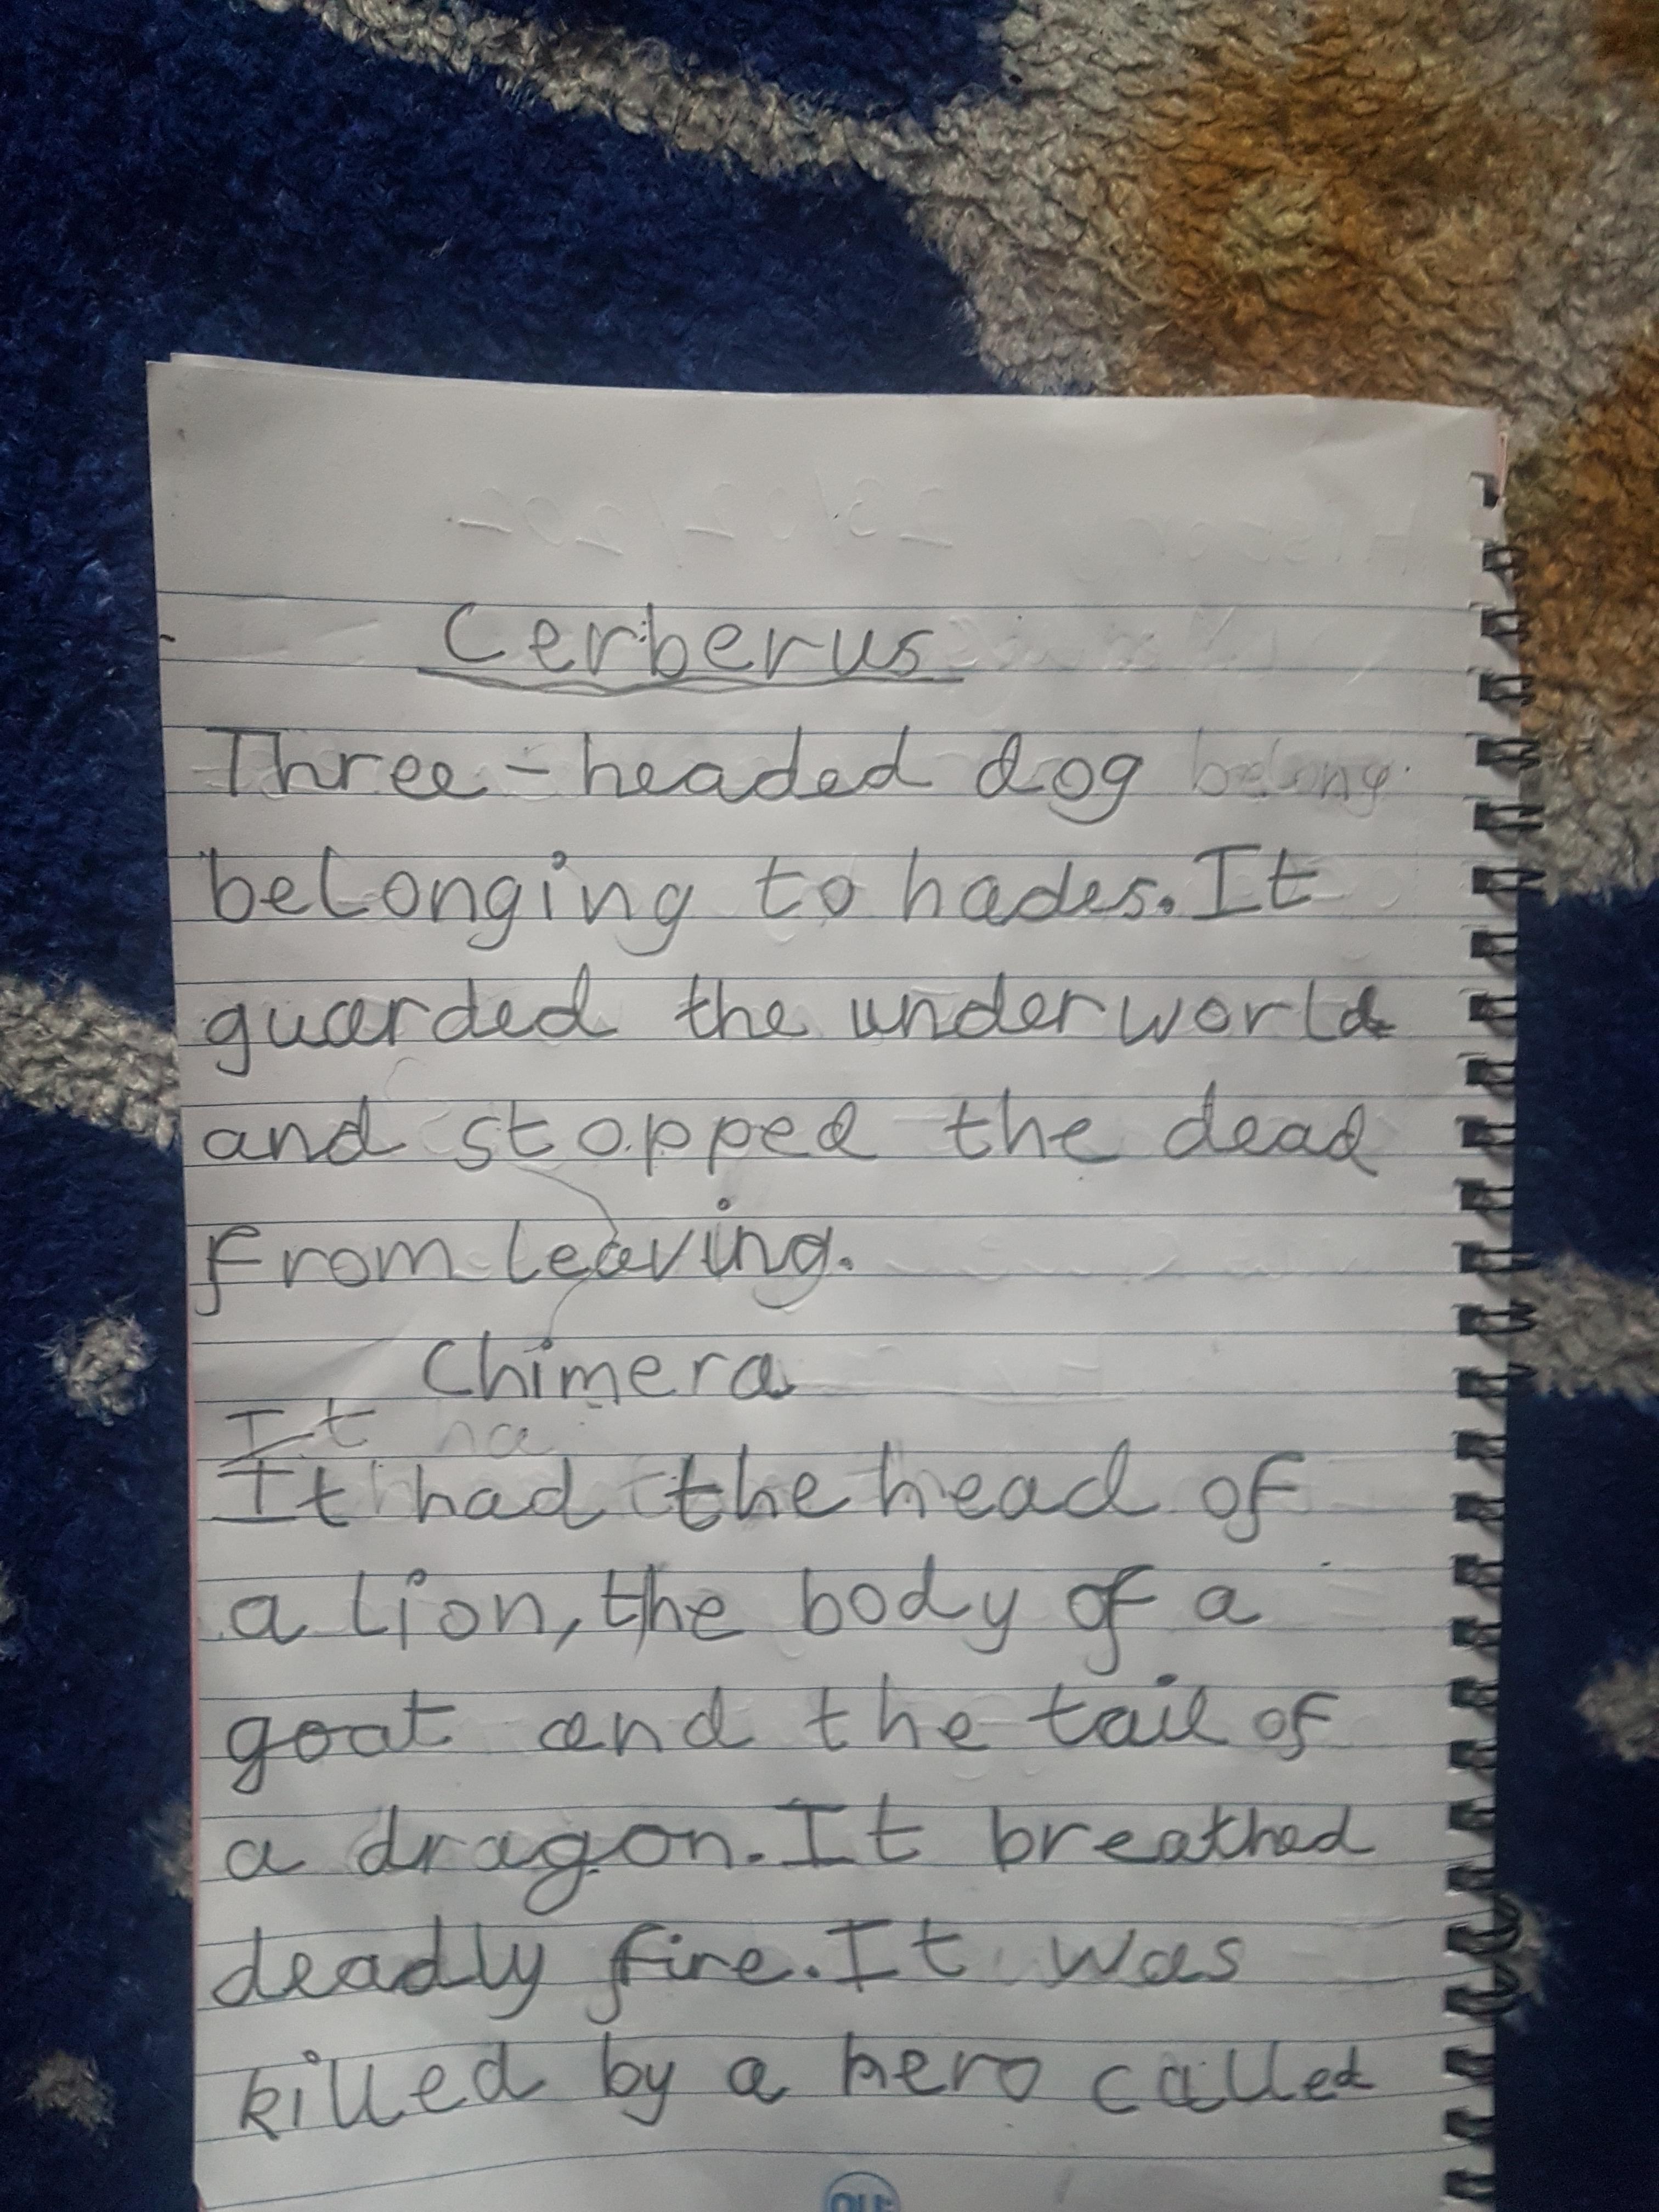 Cerberus
Three-headed dog belong
belonging to hades. It
guarded the underworld
and stopped the dead
from leaving.
Chimera
It ha
It had the head of
a lion, the body of a
goat and the tail of
a dragon. It breathed
deadly fire. It was
killed by a hero called